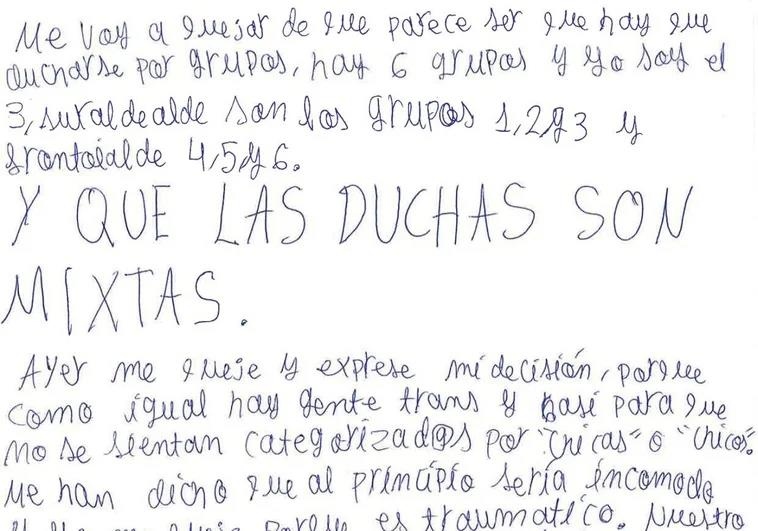 Me voy a quejar de que parece ser que hay que
ducharse por grupos, hay 6 grupos y yo soy el
3, suraldealde son los grupos 1,2y3 y
frontoialde 4,5y6.
Y QUE LAS DUCHAS SON
MIXTAS.
Ayer me queje y exprese mi decisión, porque
como igual hay gente trans y basi para que
no se sientan categorizad@s por "chicas" o "chicos".
Me han dicho que al principio sería incomodo
es traumatico. Nuestro